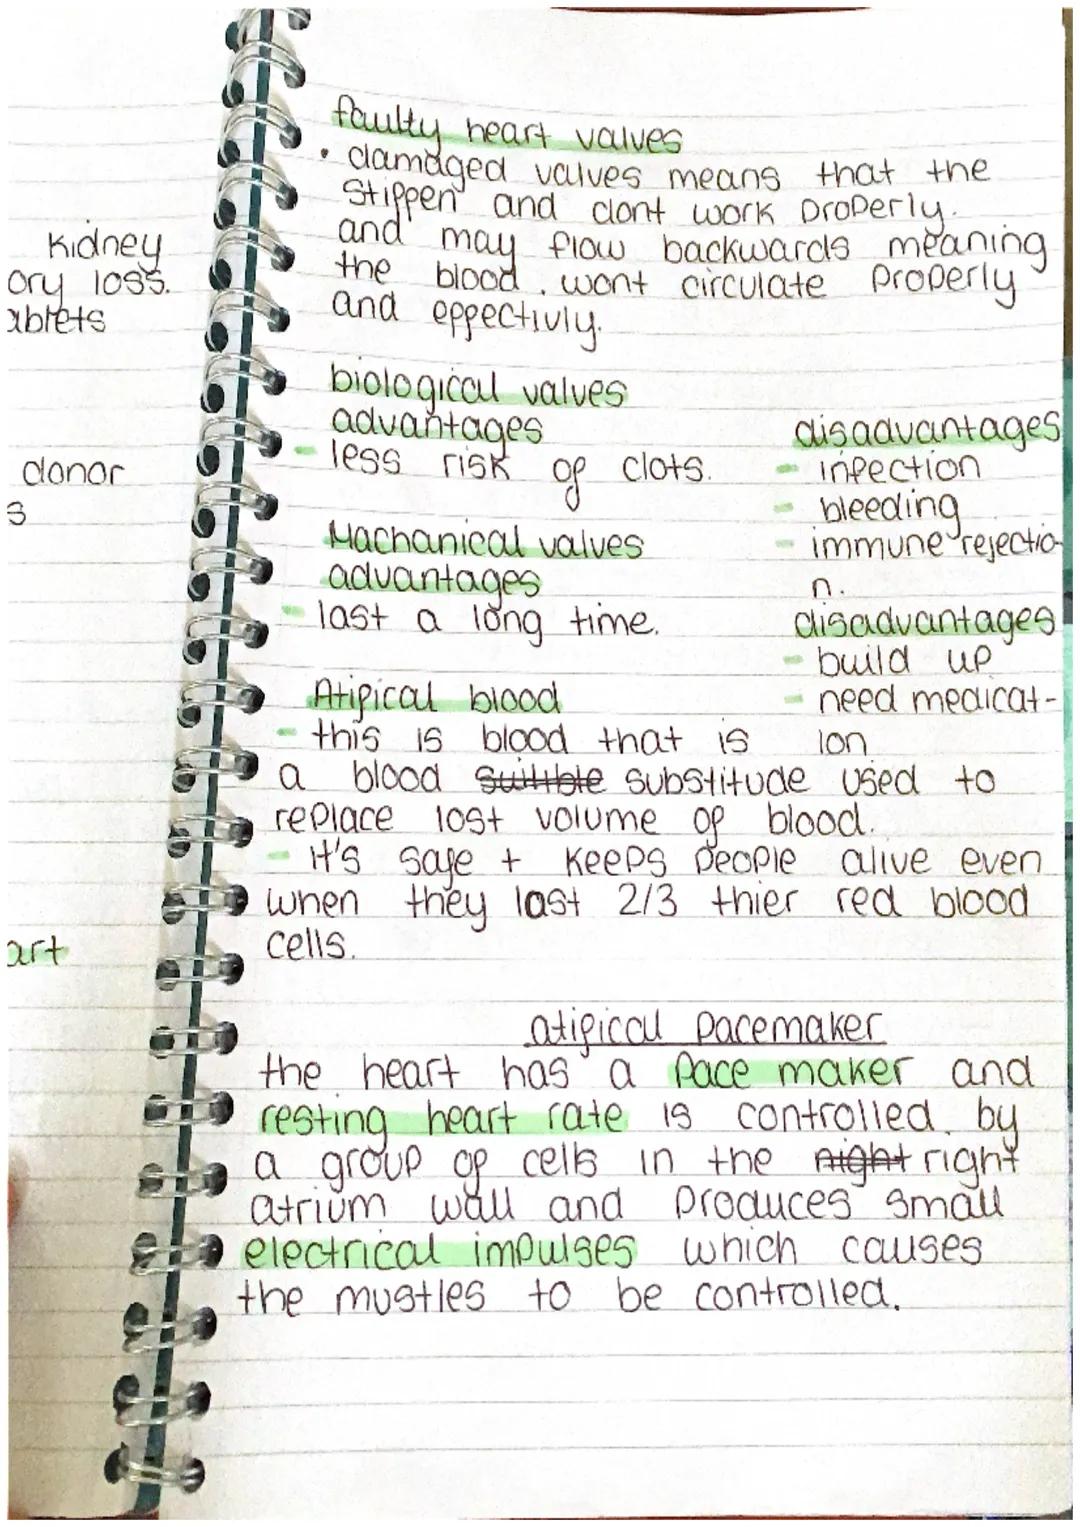 kidney
ory loss.
ablets
donor
s
art
faulty heart valves
• damaged valves means that the
stiffen and dont work properly.
and may flow backwards meaning
the blood. wont circulate properly
and effectivly.
biological valves
advantages
- less risk of clots.
disadvantages
- infection
- bleeding
- immune rejectio-
n.
Machanical valves
advantages
- last a long time.
disadvantages
- build up
- need medicat-
ion
Atifical blood
- this is blood that is
a blood suitible substitude used to
replace lost volume of blood.
- it's safe + keeps people alive even
when they last 2/3 thier red blood
cells.
atifical pacemaker
the heart has a pace maker and
resting heart rate is controlled by
a group of cells in the night right
atrium wall and produces small
electrical impulses which causes
the mustles to be controlled.